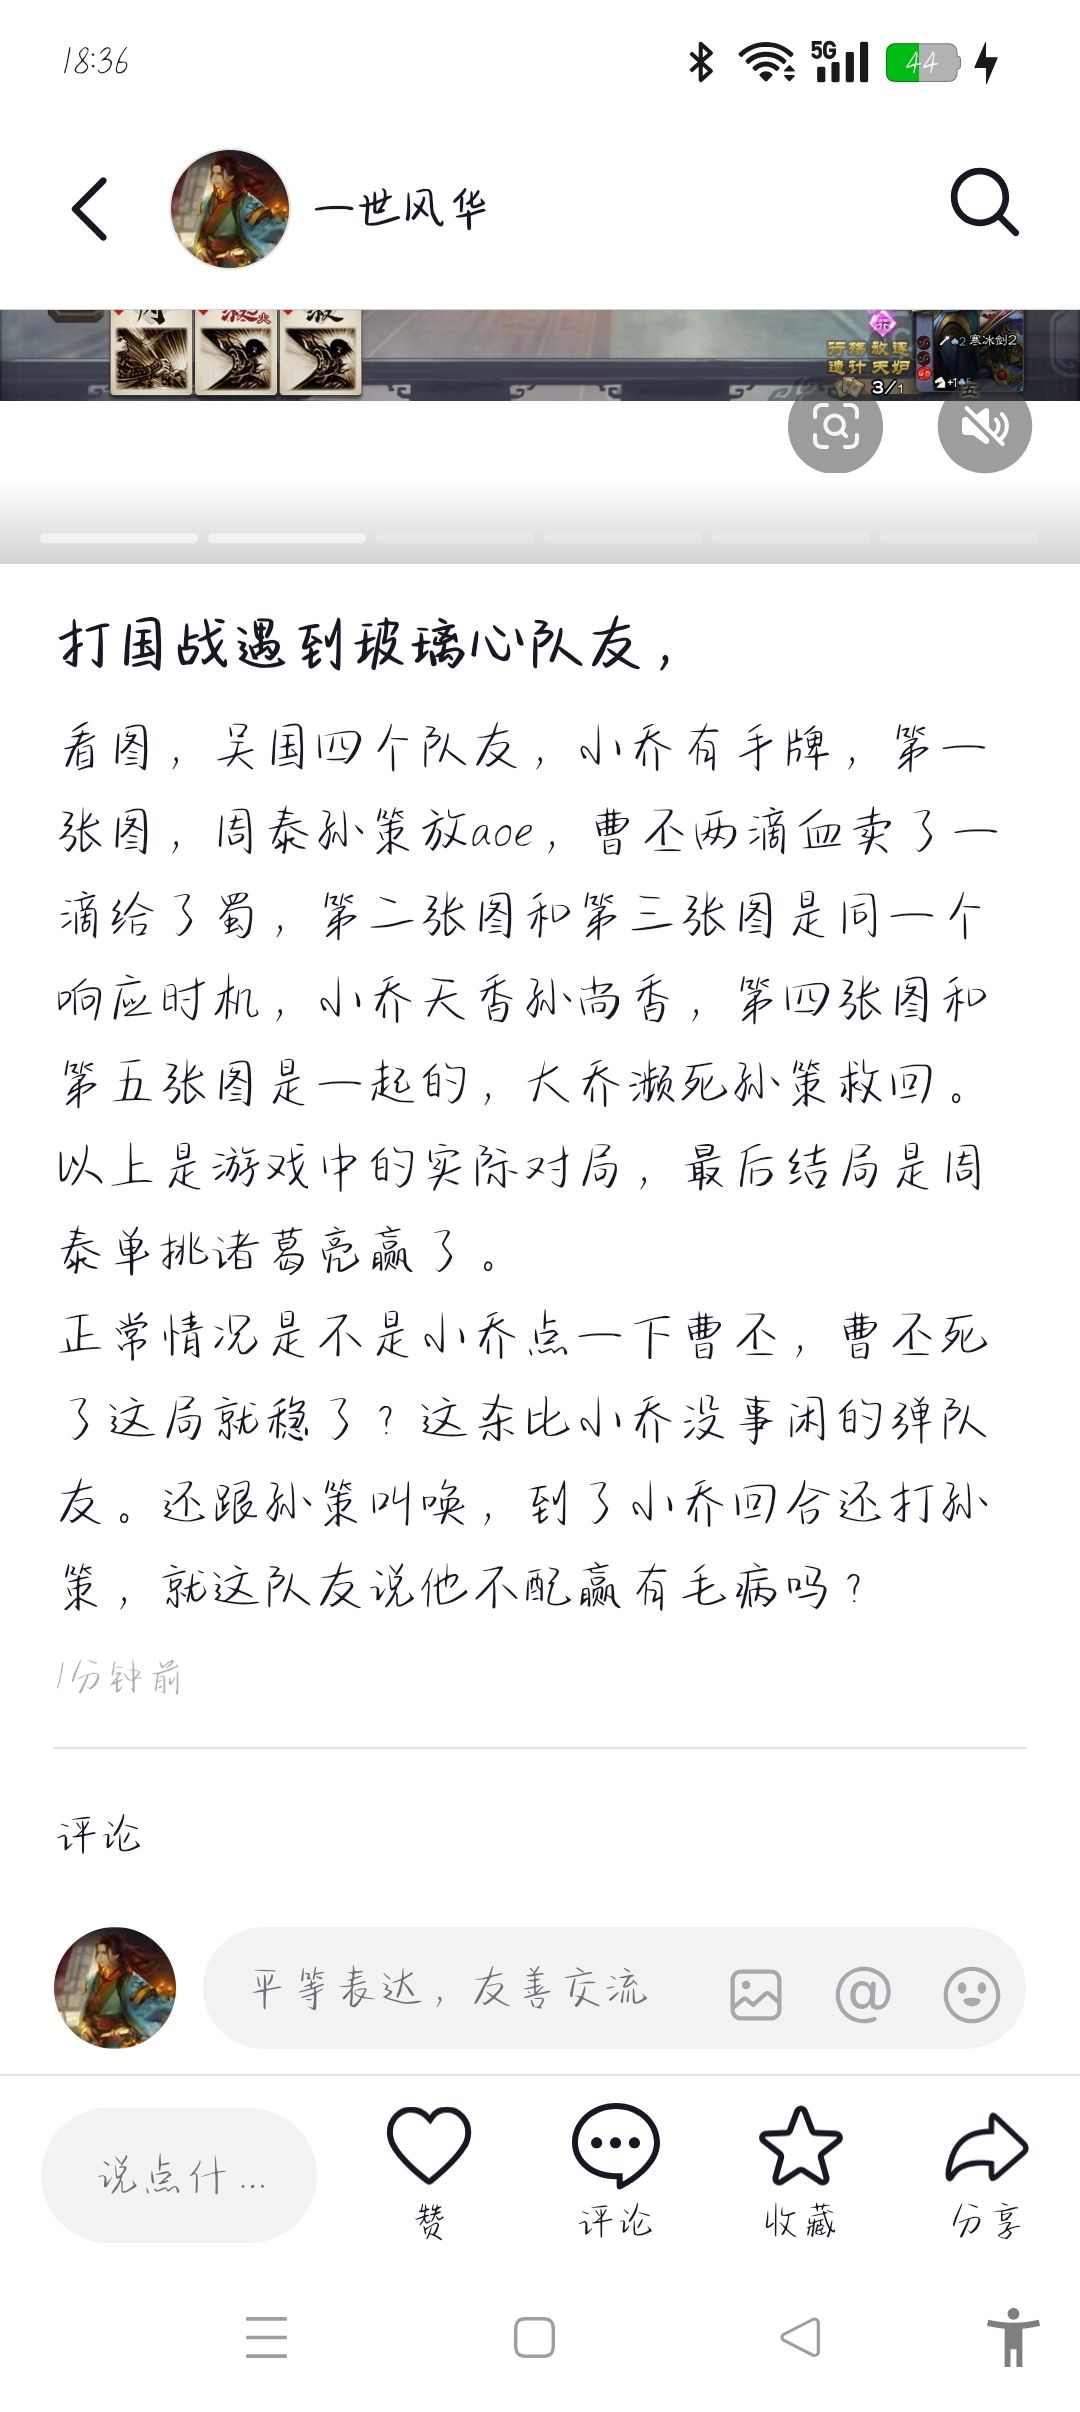 18:36
5G
44
一世风华
杀
行殇 放逐
遗计 天妒
3/1
2 寒冰剑2
+1
打国战遇到玻璃心队友，
看图，吴国四个队友，小乔有手牌，第一
张图，周泰孙策放aoe，曹丕两滴血卖了一
滴给了蜀，第二张图和第三张图是同一个
响应时机，小乔天香孙尚香，第四张图和
第五张图是一起的，大乔濒死孙策救回。
以上是游戏中的实际对局，最后结局是周
泰单挑诸葛亮赢了。
正常情况是不是小乔点一下曹丕，曹丕死
了这局就稳了？这杂比小乔没事闲的弹队
友。还跟孙策叫唤，到了小乔回合还打孙
策，就这队友说他不配赢有毛病吗？
1分钟前
评论
平等表达，友善交流
说点什...
赞
评论
收藏
分享